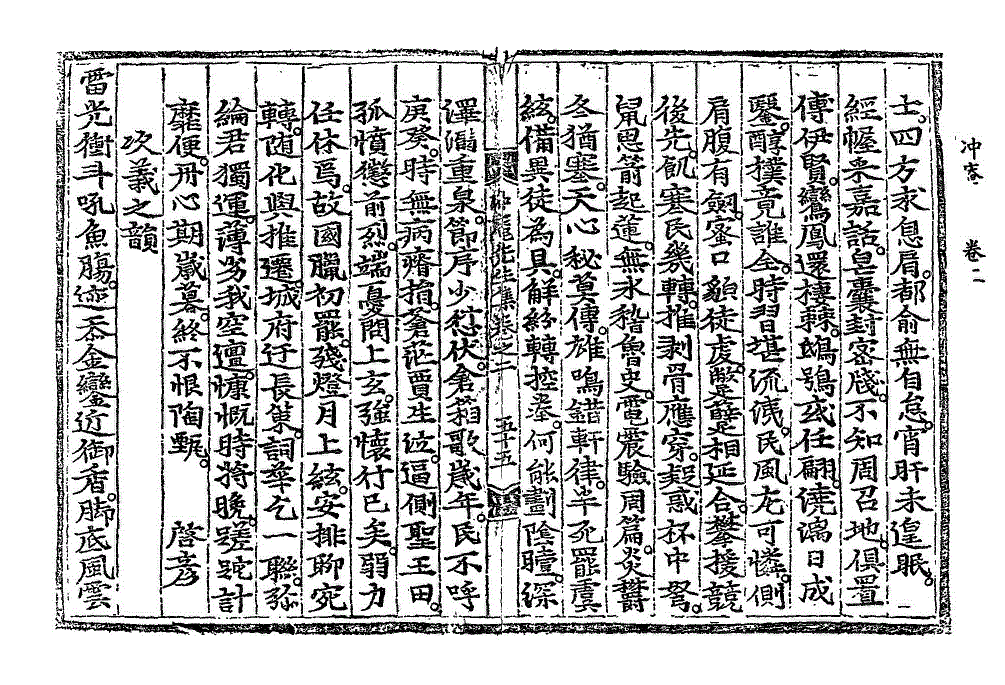 冲斋 卷二
士。四方求息肩。都俞無自怠。宵肝未遑眠。
經幄采嘉話。皂囊封密牋。不知周召地。俱置
傅伊賢。鸞鳳還棲棘。鴟鴞或任翩。澆漓日成
鑿。醇撲竟誰全。時習堪流涕。民風尤可憐。側
肩腹有劒。蜜口額徒虔。蹩躠相延合。攀援競
後先。飢寒民幾轉。推剥骨應穿。疑惑杯中弩。
鼠思箭起蓮。無氷稽魯史。電震驗周篇。炎欝
冬猶塞。天心秘莫傳。雄鳴錯軒律。半死罷虞
絃。備異徒為具。解紛轉控拳。何能劃陰曀。深
冲龍先生集卷之二 五十五
澤潟重泉。節序少愆伏。倉箱歌歲年。民不呼
庚癸。時無病瘠捐。蒼茫賈生泣。逼側聖王田。
孤憤懲前烈。端憂問上玄。強懷行已矣。弱力
任休焉。故國臘初罷。殘燈月上絃。安排聊宛
轉。随化與推遷。城府迂長策。詞華乞一聯。弥
綸君獨運。薄劣我空邅。慷慨時將晚。蹉跎計
靡便。丹心期歲暮。終不恨陶甄。 啓彥
次義之韻
雷光衝斗吼魚膓。迹忝金鑾近御香。脚底風雲